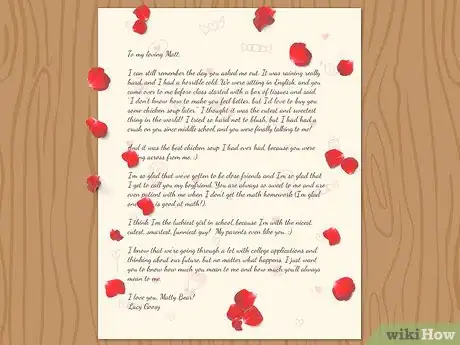 To my loving Matt,
I can still remember the day you asked me out. It was raining really
hard, and I had a horrible cold. We were sitting in English, and you
came over to me before class started with a box of tissues and said,
"I don't know how to make you feel better, but I'd love to buy you
some chicken soup later." I thought it was the cutest and sweetest
thing in the world! I tried so hard not to blush, but I had had a
crush on you since middle school, and you were finally talking to me!
And it was the best chicken soup I had ever had, because you were
across from me. :)
I'm so glad that we've gotten to be close friends and I'm so glad that
I get to call you my boyfriend. You are always so sweet to me and are
even patient with me when I don't get the math homework (I'm glad
is good at math!).
I think I'm the luckiest girl in school, because I'm with the nicest,
cutest, smartest, funniest guy! My parents even like you. :)
I know that we're going through a lot with college applications and
thinking about our future, but no matter what happens, I just want
you to know how much you mean to me and how much you'll always
mean to me.
I love you, Matty Bear!
Lucy Goosy
wikiHow